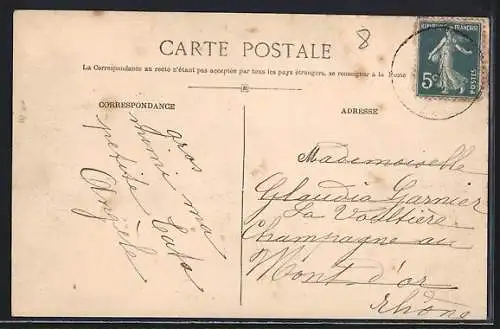 8
CARTE POSTALE
La Correspondance au recto n'étant pas acceptée par tous les pays étrangers, se renseigner à la Poste
REPUBLIQUE FRANÇAISE
5c
POSTES
CORRESPONDANCE
gros
mimi ma
petite
Angèle
ADRESSE
Mademoiselle
Glaudia Garnier
La Voultière
Champagne au
Mont d'or
Rhône